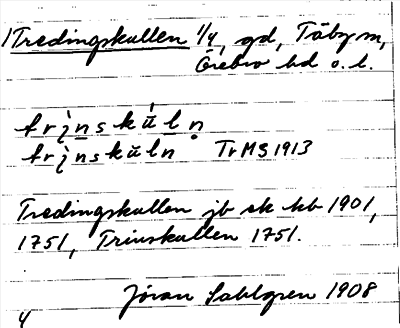 1 Tredingskullen 1/4, gd, Täby sn,
Örebro hd o. l.
trinskŭln
trinskŭln TrMS 1913
Tredingskullen jb ek kb 1901,
1751, Trinskullen 1751.
Jöran Sahlgren 1908
4